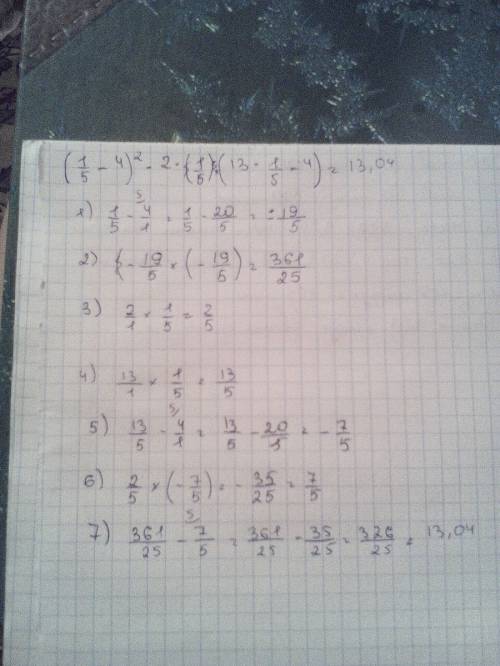 (1/5 - 4)² - 2 · (1/5) · (13 · 1/5 - 4) = 13,04
1) 1/5 - 4/1 = 1/5 - 20/5 = - 19/5
2) - 19/5 × (- 19/5) = 361/25
3) 2/1 × 1/5 = 2/5
4) 13/1 × 1/5 = 13/5
5) 13/5 - 4/1 = 13/5 - 20/5 = - 7/5
6) 2/5 × (- 7/5) = - 35/25 = 7/5
7) 361/25 - 7/5 = 361/25 - 35/25 = 326/25 = 13,04